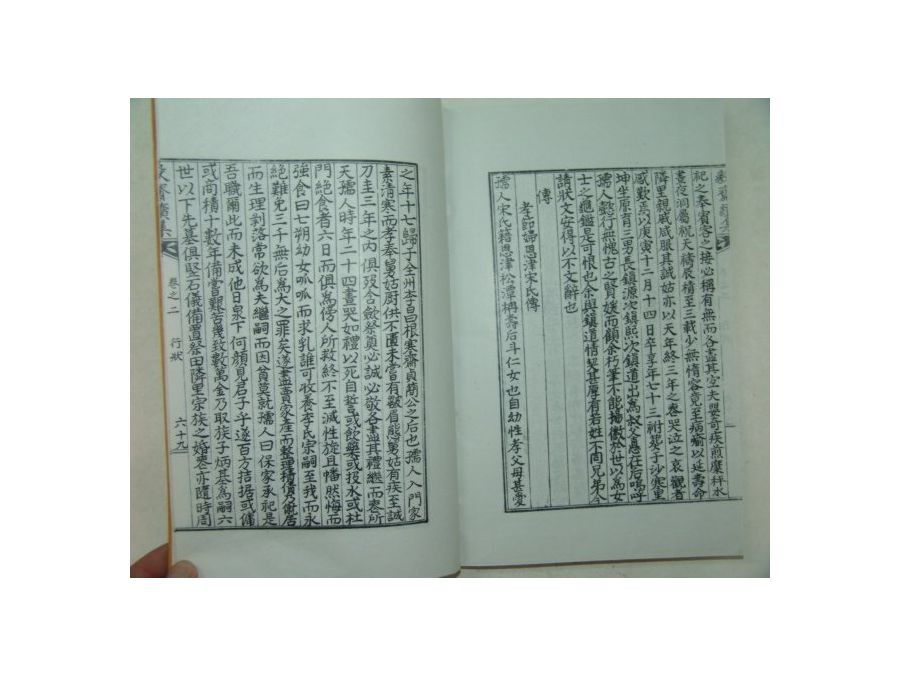 祀之奉賓客之接必稱有無而各盡其空夫嬰奇疾煎糜秤水
晝夜洞屬祝天禱辰積至三載少無惰容竟至病瘉以延壽命
隣里親戚咸服其誠姑亦以天年終三年之喪哭泣之哀觀者
感歎焉以庚寅十二月十四日卒享年七十三祔葬于沙寒里
坤坐原育三男長鎭源次鎭熙次鎭道出爲叔父息在后嗚呼
孺人懿行無愧古之賢媛而顧余朽筆不能揄徽於世以爲女
士之龜鑑是可恨也余與鎭道情契甚厚有若姓不同兄弟今
請狀文安得以不文辭也
傳
孝節婦恩津宋氏傳
孺人宋氏籍恩津松潭枏壽后斗仁女也自幼性孝父母甚愛
之年十七歸于全州李昌根寒齋貞簡公之后也孺人入門家
素清寒而孝奉舅姑厨供不匱未嘗有皺眉態舅姑有疾至誠
刀圭三年之內俱歿含斂祭奠必誠必敬各盡其禮繼而喪所
天孺人時年二十四晝哭如禮以死自誓或飮藥或投水或杜
門絶食者六日而俱爲傍人所救終不至滅性旋且幡然悔而
強食曰七朔幼女呱呱而求乳誰可收養李氏宗嗣至我而永
絶難免三千無后爲大之罪矣遂盡賣家産而整理積債乃僦居
而生理剝落常欲爲夫繼嗣而因貧莫就孺人曰保家承祀是
吾職爾此而未成他日泉下何顔見君子乎遂百方拮据或傭
或商積十數年備嘗艱苦幾致數萬金乃取族子炳基爲嗣六
世以下先墓俱竪石儀備置祭田隣里宗族之婚喪亦隨時周
卷之二　行狀　六十九